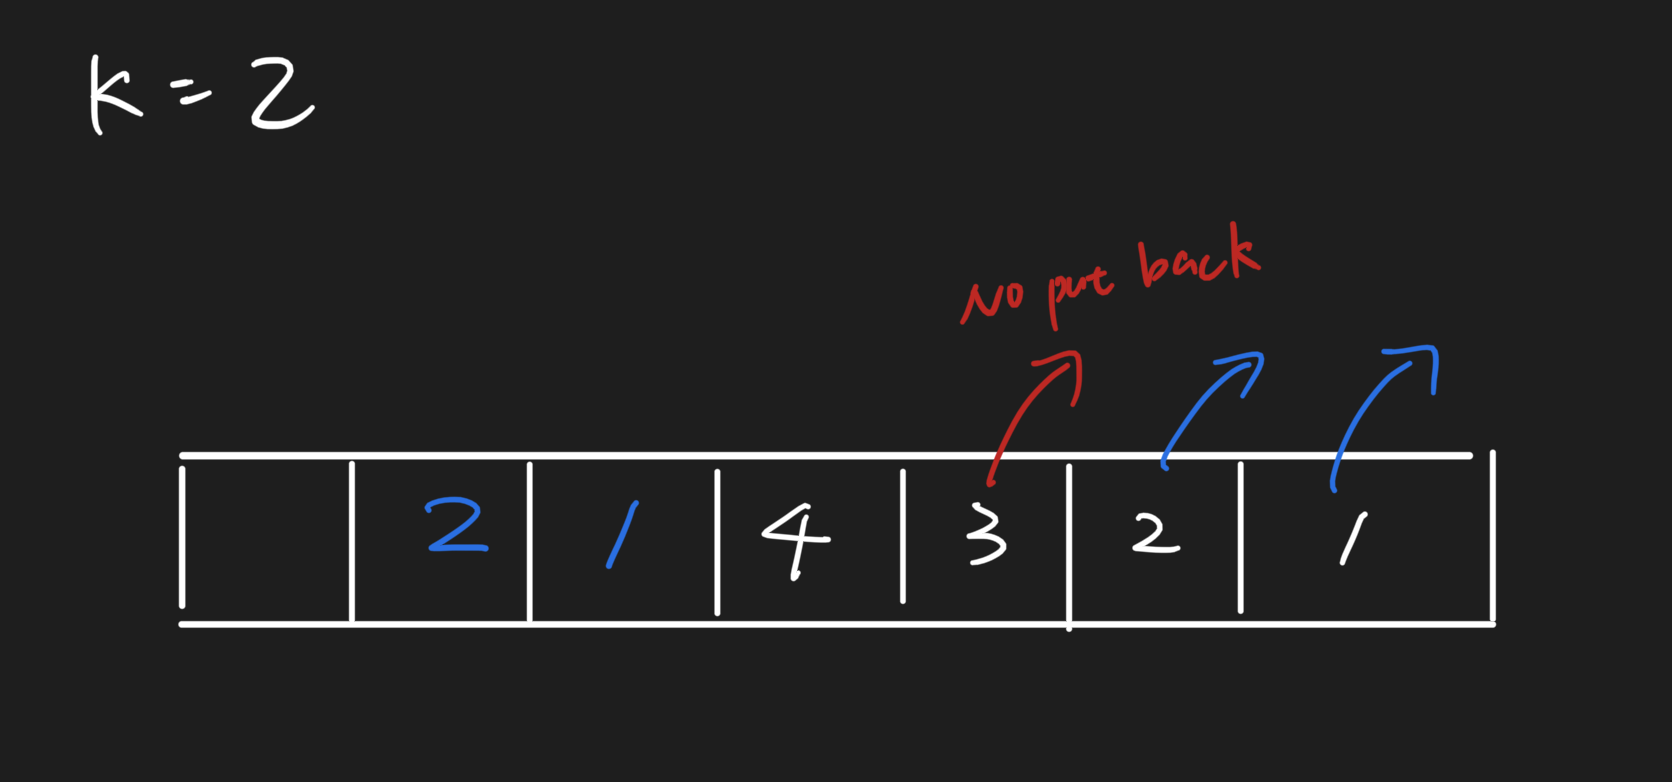 k = 2
No put back
2 1 4 3 2 1